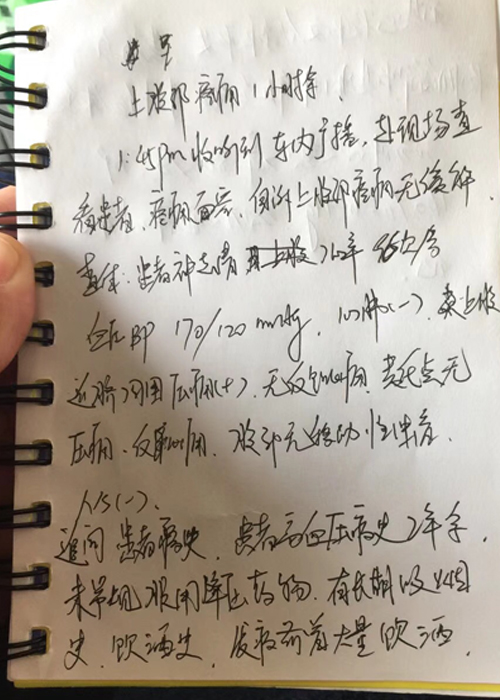 上腹部疼痛1小时余.
1:45pm 收听到车内广播,赴现场查
看患者,疼痛面容,自诉上腹部疼痛无缓解.
查体:患者神志清 次/分
BP 170/120 mmHg, 心肺(-).
近脐周围压痛(+). 无反跳痛. 麦氏点无
压痛、反跳痛. 腹部无移动性浊音.
追问患者病史, 患者高血压病史2年余,
未规规服用降压药物. 有长期吸烟
史、饮酒史, 发病前着大量饮酒.